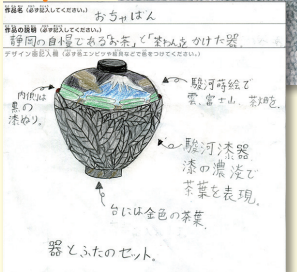 作品名（必ず記入してください。）
おちゃばん
作品の説明（必ず記入してください。）
静岡の自慢であるお茶と「茶わんをかけた器。
デザイン画記入欄（必ず色エンピツや絵具などで色をつけてください。）
内側は
黒の
漆ぬり。
駿河蒔絵で
雲、富士山、茶畑を。
駿河漆器
漆の濃淡で
茶葉を表現。
台には金色の茶葉。
器とふたのセット。